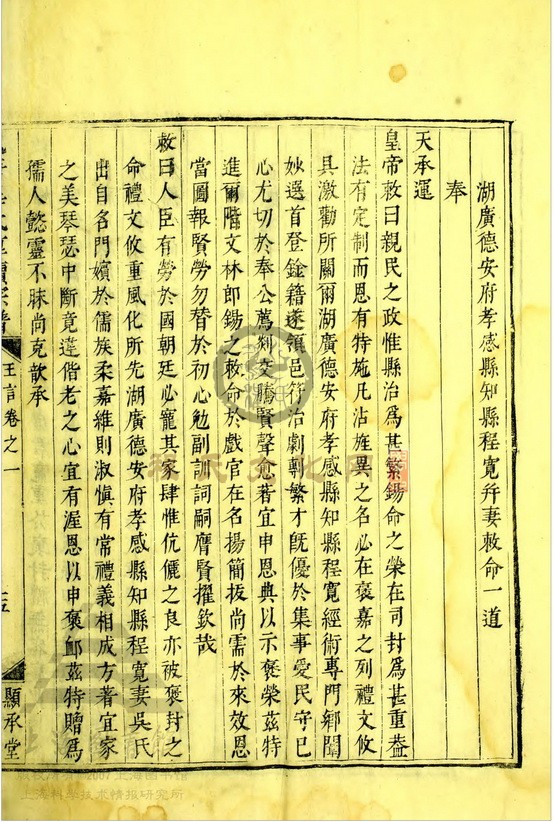 湖廣德安府孝感縣知縣程寬并妻敕命一道
奉
天承運
皇帝敕曰親民之政惟縣治為甚繁錫命之榮在司封為甚重葢
法有定制而恩有特施凡沾旌異之名必在褒嘉之列禮文攸
具激勸所關爾湖廣德安府孝感縣知縣程寬經術專門鄉闈
妙選首登銓籍遂領邑符治劇剸繁才旣優於集事愛民守已
心尤切於奉公薦剡交騰賢聲愈著宜申恩典以示褒榮茲特
進爾階文林郎錫之敕命於戲官在名揚簡抜尚需於來效恩
當圖報賢勞勿替於初心勉副訓詞嗣膺賢擢欽哉
敕曰人臣有勞於國朝廷必寵其家肆惟伉儷之良亦被褒封之
命禮文攸重風化所先湖廣德安府孝感縣知縣程寬妻吳氏
出自名門嬪於儒族柔嘉維則淑慎有常禮義相成方著宜家
之美琴瑟中斷竟違偕老之心宜有渥恩以申褒卹茲特贈為
孺人懿靈不昧尚克歆承
王言卷之一
顯承堂
上海科学技术情报研究所